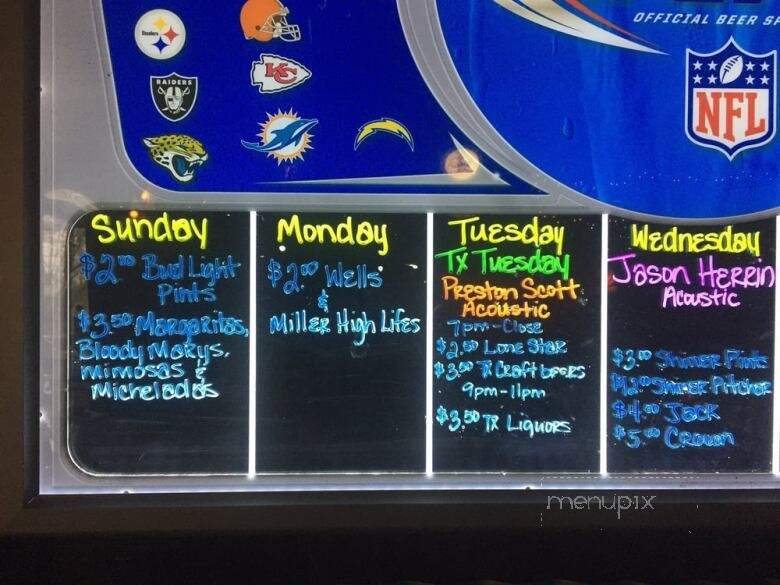 Steelers
RAIDERS
KC
OFFICIAL BEER
NFL
Sunday
$2.00 Bud Light
Pints
$3.50 Margaritas,
Bloody Marys,
mimosas &
Micheladas
Monday
$2.00 Wells
&
Miller High Lifes
Tuesday
TX Tuesday
Preston Scott
Acoustic
7pm-Close
$2.50 Lone Star
$3.00 TX Craft beers
9pm-11pm
$3.50 TX Liquors
Wednesday
Jason Herrin
Acoustic
$3.00 Shiner Pints
Shiner Pitcher
$4.00 Jack
$5.00 Crown
menupix